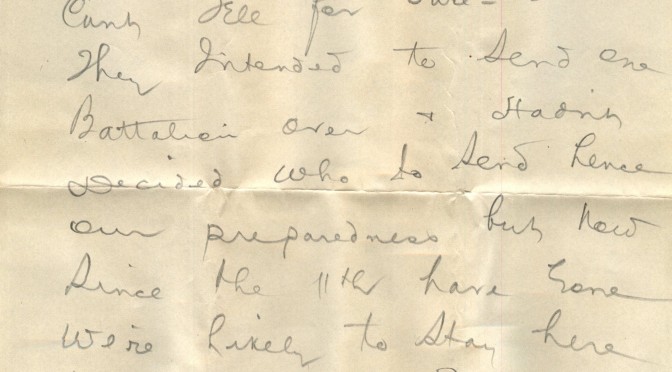 Cant tell for sure -
They Intended to Send one
Battalion over + Hadnt
Decided who to Send hence
our preparedness but Now
Since the 11th have Gone
We're likely to Stay here